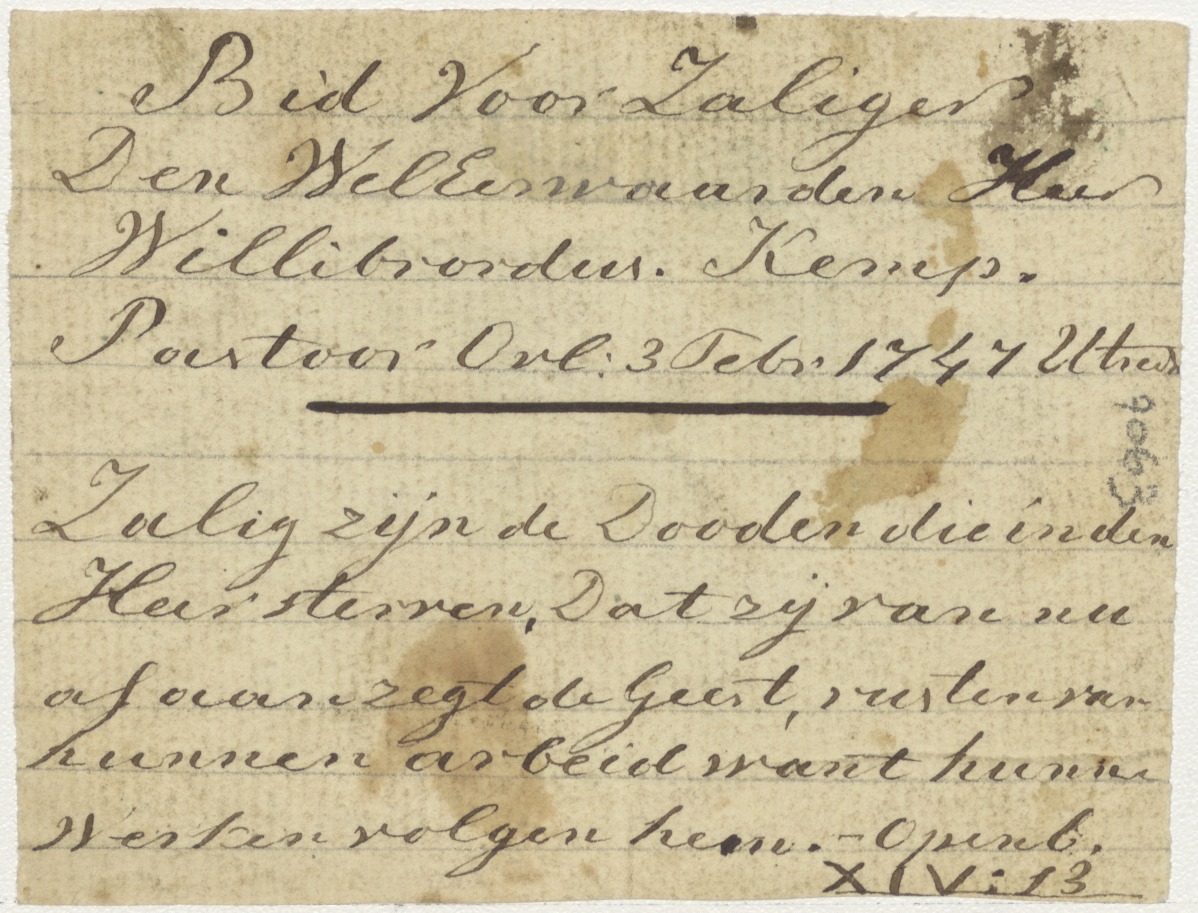 Bid Voor Zaliger
Den WelEerwaarden Heer
Willibrordus. Kemp.
Pastoor Ovl: 3 Febr 1747 Utrecht
Zalig zijn de Dooden die in den
Heer sterven, Dat zij van nu
af aan zegt de Geest, rusten van
hunnen arbeid want hunne
Werken volgen hem. - Openb.
XIV: 13